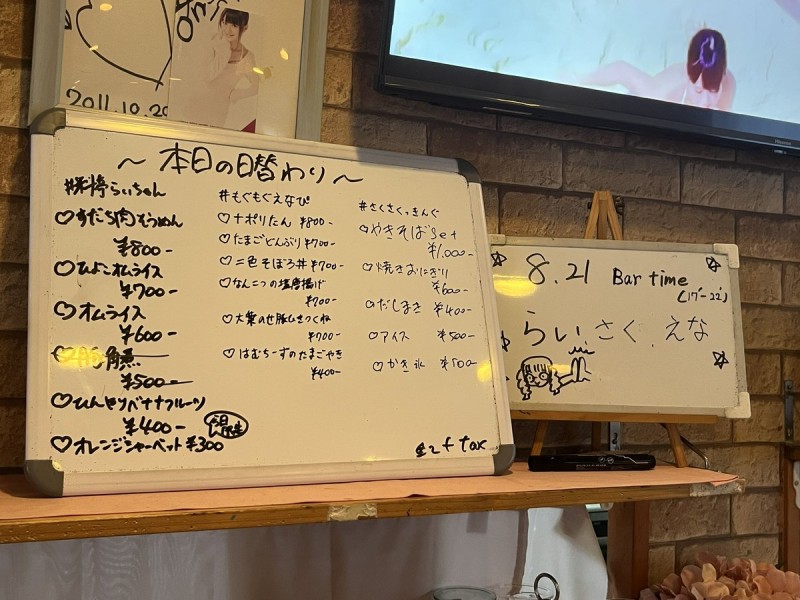 2011.10.20
～本日の日替わり～
#来待らぃちゃん
♡すだち肉そうめん
¥800-
♡ひよこオムライス
¥700-
♡オムライス
¥600-
角煮
¥500-
♡ひんやりベナナフルーツ
¥400-
♡オレンジシャーベット¥300
#もぐもぐえなぴ
♡ナポリたん ¥800-
♡たまごどんぶり¥700-
♡二色そぼろ丼¥700-
♡なんこつの塩唐揚げ
¥700-
♡大葉のせ豚ひきつくね
¥700-
♡はむちーずのたまごやき
¥400-
#さくさくっきんぐ
♡やきそばset
¥1,000-
♡焼きおにぎり
¥600-
♡だしまき ¥400-
♡アイス ¥500-
♡かき氷 ¥500-
全て+tax
8.21 Bar time
(17-22)
らぃ さく えな
Hisense